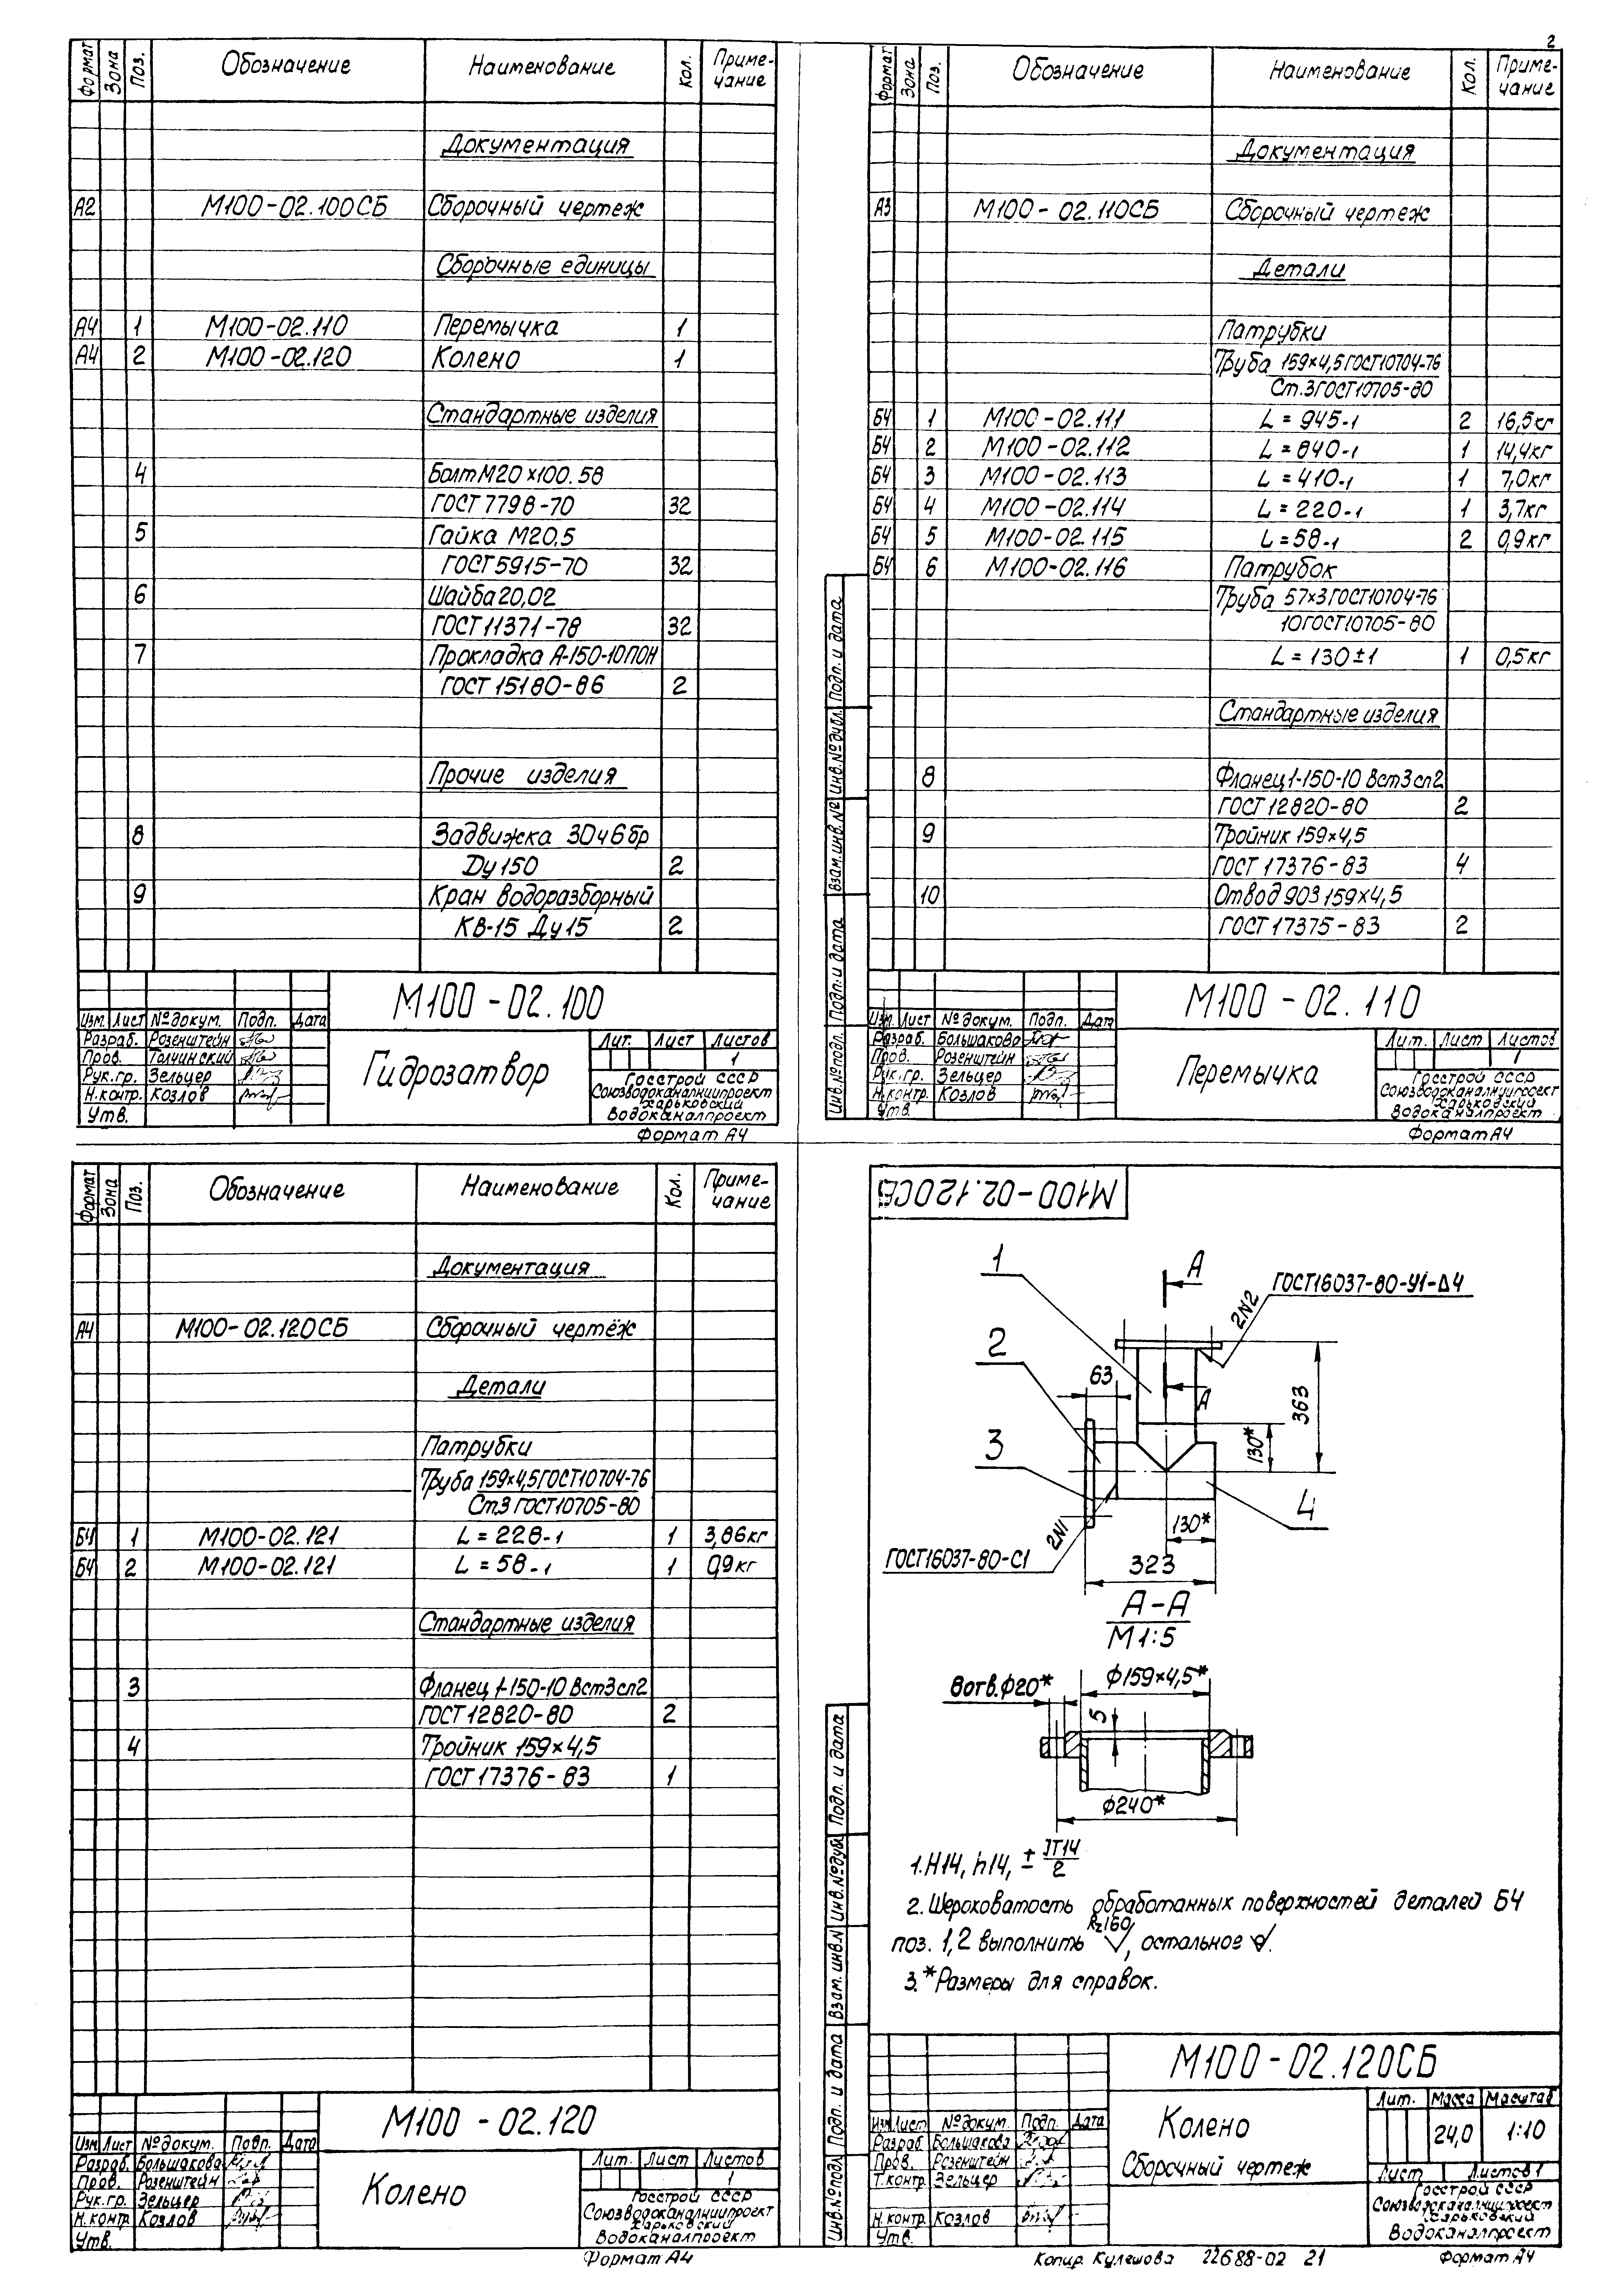 2
Формат
Зона
Поз.
Обозначение
Наименование
Кол.
Приме-
чание
Документация
А2 М100-02.100СБ Сборочный чертеж
Сборочные единицы
А4 1 М100-02.110 Перемычка 1
А4 2 М100-02.120 Колено 1
Стандартные изделия
4 Болт М20×100.58
ГОСТ 7798-70 32
5 Гайка М20,5
ГОСТ 5915-70 32
6 Шайба 20,02
ГОСТ 11371-78 32
7 Прокладка А-150-10 ПОН
ГОСТ 15180-86 2
Прочие изделия
8 Задвижка 30ч6бр
Ду 150 2
9 Кран водоразборный
КВ-15 Ду 15 2
М100-02.100
Изм. Лист № докум. Подп. Дата
Разраб. Розенштейн
Пров. Толчинский
Рук.гр. Зельцер
Н.контр. Козлов
Утв.
Гидрозатвор
Лит. Лист Листов
1
Госстрой СССР
Союзводоканалниипроект
Харьковский
Водоканалпроект
Формат А4
Формат
Зона
Поз.
Обозначение
Наименование
Кол.
Приме-
чание
Документация
А3 М100-02.110СБ Сборочный чертеж
Детали
Патрубки
Труба 159×4,5 ГОСТ 10704-76
Ст.3 ГОСТ 10705-80
БЧ 1 М100-02.111 L = 945-1 2 16,5кг
БЧ 2 М100-02.112 L = 840-1 1 14,4кг
БЧ 3 М100-02.113 L = 410-1 1 7,0кг
БЧ 4 М100-02.114 L = 220-1 1 3,7кг
БЧ 5 М100-02.115 L = 58-1 2 0,9кг
БЧ 6 М100-02.116 Патрубок
Труба 57×3 ГОСТ 10704-76
10 ГОСТ 10705-80
L = 130±1 1 0,5кг
Стандартные изделия
8 Фланец 1-150-10 Вст3сп2
ГОСТ 12820-80 2
9 Тройник 159×4,5
ГОСТ 17376-83 4
10 Отвод 903 159×4,5
ГОСТ 17375-83 2
Подп. и дата
Инв.№ дубл.
Взам.инв.№
Подп. и дата
Инв.№ подл.
М100-02.110
Изм. Лист № докум. Подп. Дата
Разраб. Большакова
Пров. Розенштейн
Рук.гр. Зельцер
Н.контр. Козлов
Утв.
Перемычка
Лит. Лист Листов
1
Госстрой СССР
Союзводоканалниипроект
Харьковский
Водоканалпроект
Формат А4
Формат
Зона
Поз.
Обозначение
Наименование
Кол.
Приме-
чание
Документация
А4 М100-02.120СБ Сборочный чертёж
Детали
Патрубки
Труба 159×4,5 ГОСТ 10704-76
Ст.3 ГОСТ 10705-80
БЧ 1 М100-02.121 L = 228-1 1 3,86кг
БЧ 2 М100-02.121 L = 58-1 1 0,9кг
Стандартные изделия
3 Фланец 1-150-10 Вст3сп2
ГОСТ 12820-80 2
4 Тройник 159×4,5
ГОСТ 17376-83 1
М100-02.120
Изм Лист № докум. Подп. Дата
Разраб. Большакова
Пров. Розенштейн
Рук.гр. Зельцер
Н.контр. Козлов
Утв.
Колено
Лит. Лист Листов
1
Госстрой СССР
Союзводоканалниипроект
Харьковский
Водоканалпроект
Формат А4
М100-02.120СБ
1
А
ГОСТ 16037-80-У1-Δ4
2N2
2
63
А
363
130*
3
4
2N1
130*
ГОСТ 16037-80-С1
323
А-А
М1:5
8отв.ф20*
ф159×4,5*
5
ф240*
1. Н14, h14, ± IT14/2
2. Шероховатость обработанных поверхностей деталей БЧ
поз. 1,2 выполнить Rz160, остальное
3.*Размеры для справок.
Подп. и дата
Инв.№ дубл
Взам. инв.№
Подп. и дата
Инв.№ подл
М100-02.120СБ
Изм Лист № докум. Подп. Дата
Разраб Большакова
Пров. Розенштейн
Т.контр Зельцер
Н.контр. Козлов
Утв.
Колено
Сборочный чертеж
Лит. Масса Масштаб
24,0 1:10
Лист Листов 1
Госстрой СССР
Союзводоканалниипроект
Харьковский
Водоканалпроект
Копир. Кулешова 22688-02 21 Формат А4